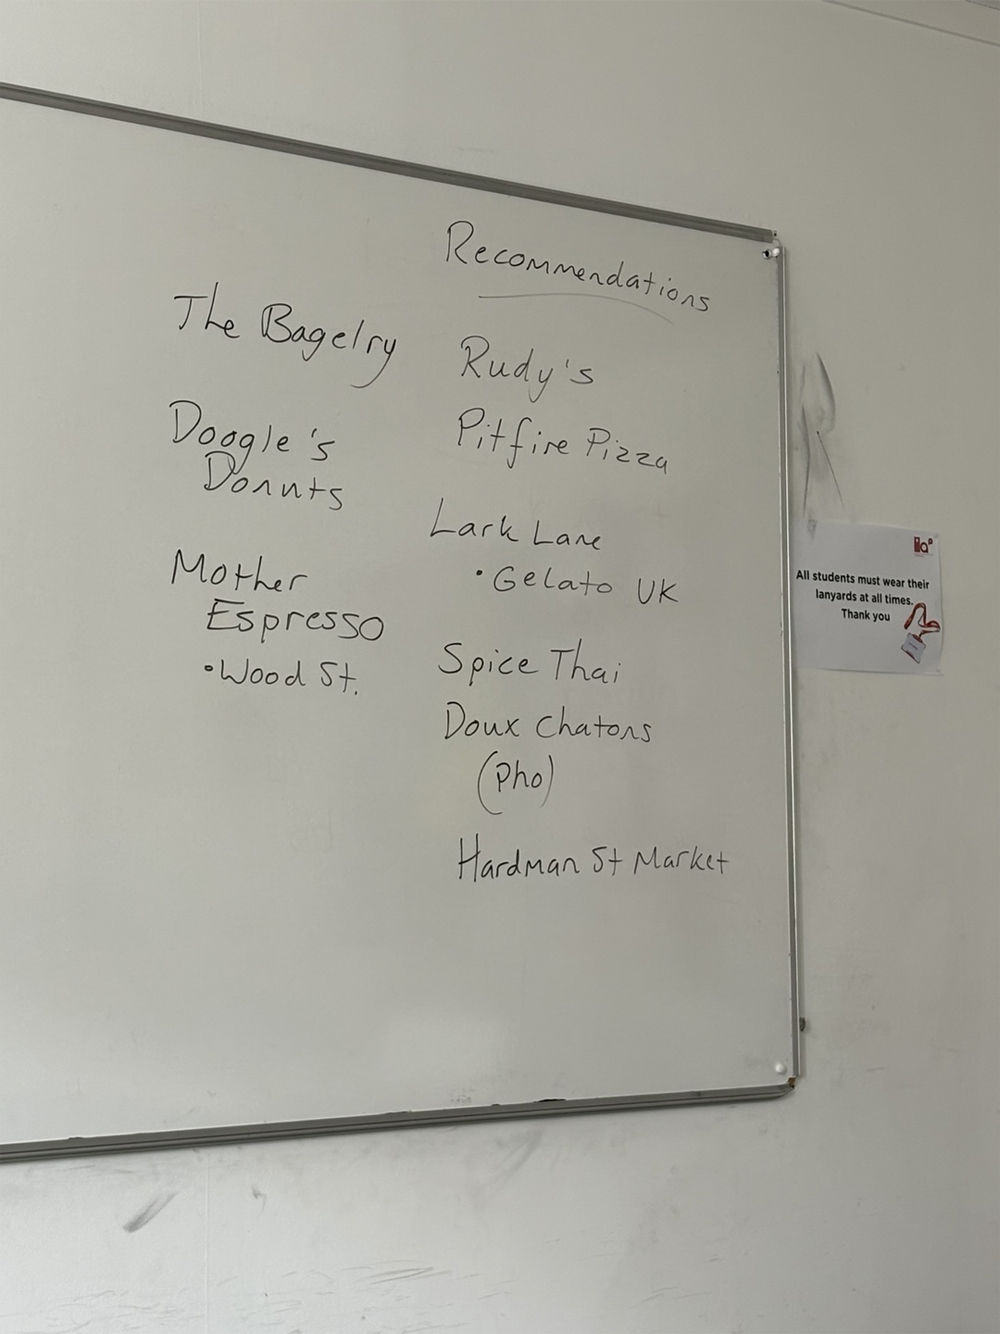 Recommendations
The Bagelry
Doogle's
Donuts
Mother
Espresso
•Wood St.
Rudy's
Pitfire Pizza
Lark Lane
•Gelato UK
Spice Thai
Doux Chatons
(Pho)
Hardman St Market
All students must wear their
lanyards at all times.
Thank you